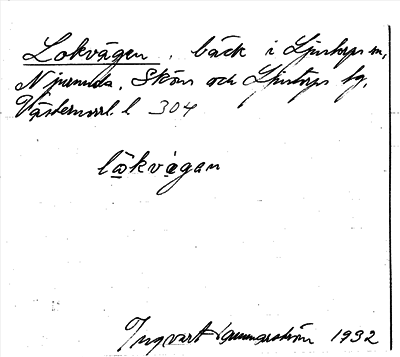 Lokvägen, bäck i Ljustorps sn,
Njurunda, Sköns och Ljustorps tg,
Västernorrl. l 304
lo̲kvä̀gan
Ingvart 1932